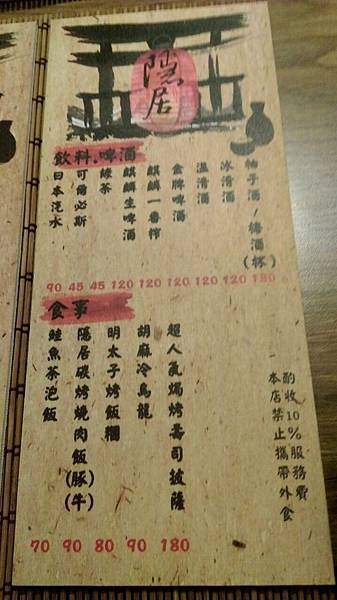 隱居
飲料.啤酒
日本汽水
可爾必斯
綠茶
麒麟生啤酒
麒麟一番榨
金牌啤酒
溫清酒
冰清酒
柚子酒/梅酒(杯)
90 45 45 120 120 120 120 120 180
食事
鮭魚茶泡飯
隱居碳烤燒肉飯(豚)(牛)
明太子烤飯糰
胡麻冷烏龍
超人氣焗烤壽司披薩
70 90 80 90 180
酌收10%服務費
本店禁止攜帶外食